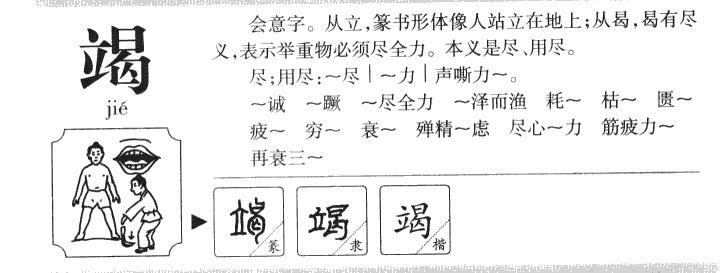 竭
jié
会意字。从立,篆书形体像人站立在地上;从曷,曷有尽
义,表示举重物必须尽全力。本义是尽、用尽。
尽;用尽:～尽｜～力｜声嘶力～。
～诚 ～蹶 ～尽全力 ～泽而渔 耗～ 枯～ 匮～
疲～ 穷～ 衰～ 殚精～虑 尽心～力 筋疲力～
再衰三～
竭 篆 竭 隶 竭 楷